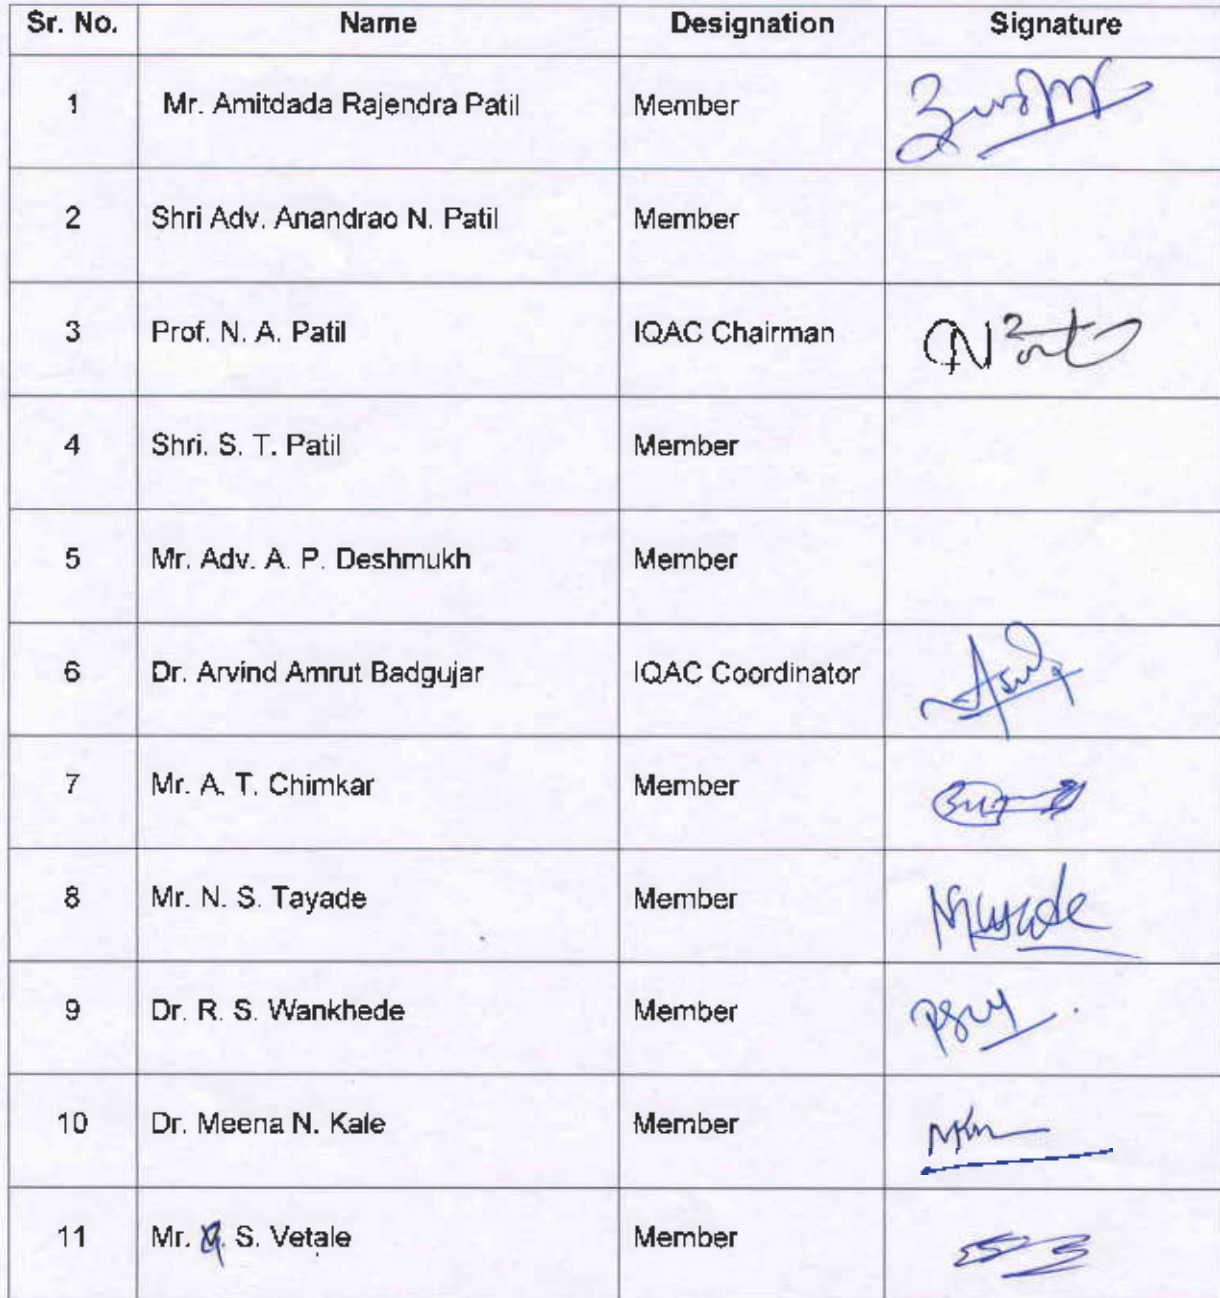 Sr. No. Name Designation Signature
1 Mr. Amitdada Rajendra Patil Member
2 Shri Adv. Anandrao N. Patil Member
3 Prof. N. A. Patil IQAC Chairman
4 Shri. S. T. Patil Member
5 Mr. Adv. A. P. Deshmukh Member
6 Dr. Arvind Amrut Badgujar IQAC Coordinator
7 Mr. A. T. Chimkar Member
8 Mr. N. S. Tayade Member
9 Dr. R. S. Wankhede Member
10 Dr. Meena N. Kale Member
11 Mr. S. Vetale Member